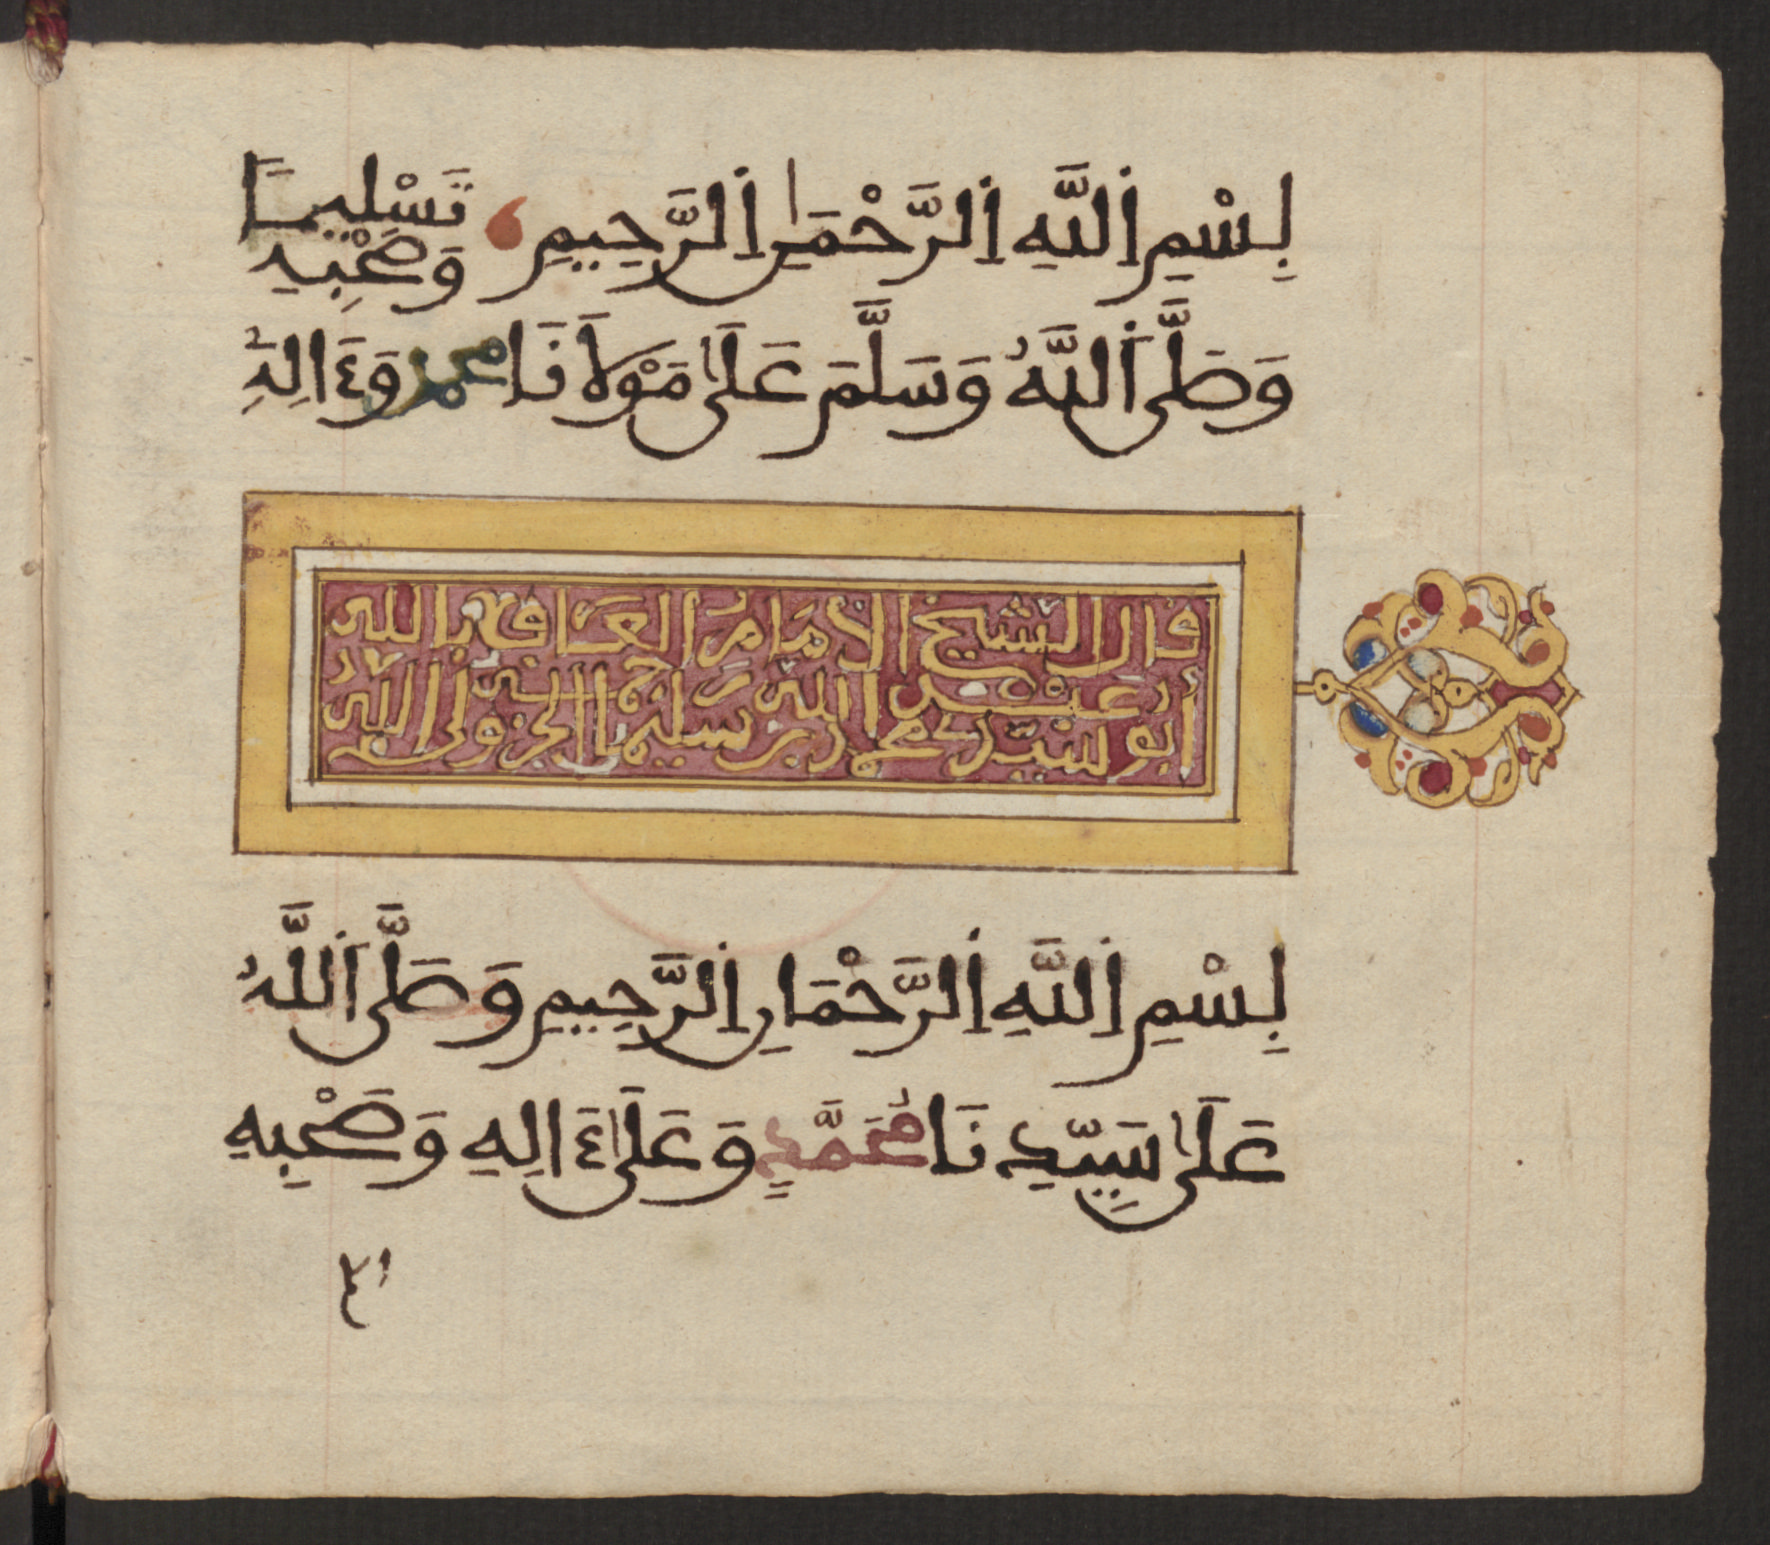 بِسْمِ اللَّهِ الرَّحْمَٰنِ الرَّحِيمِ
وَصَلَّى اللَّهُ وَسَلَّمَ عَلَىٰ مَوْلَانَا محمد وَءَالِهِ
وَصَحْبِهِ تَسْلِيمًا
قال الشيخ الإمام العارف بالله
أبو عبد الله سيدي محمد بن سليمان الجزولي
بِسْمِ اللَّهِ الرَّحْمَانِ الرَّحِيمِ وَصَلَّى اللَّهُ
عَلَىٰ سَيِّدِنَا مُحَمَّدٍ وَعَلَىٰ ءَالِهِ وَصَحْبِهِ